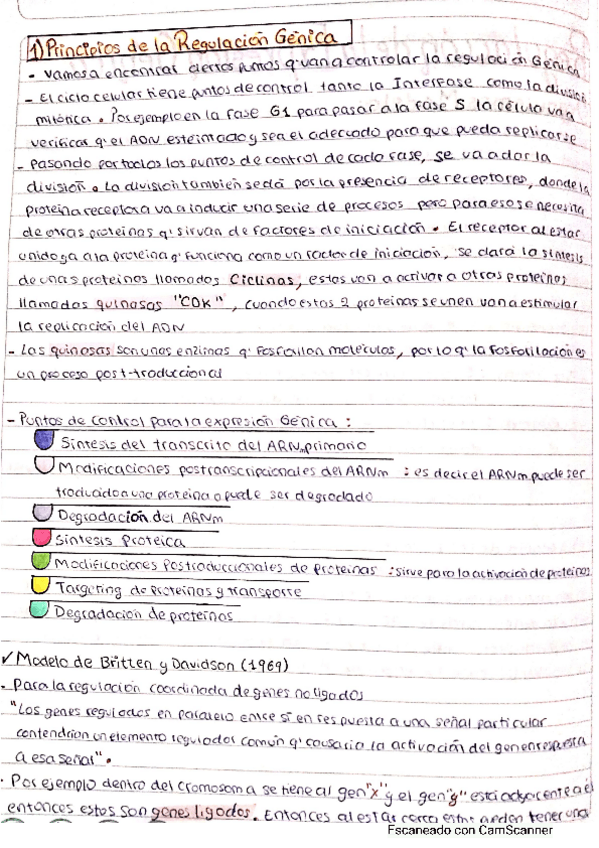 1) Principios de la Regulación Génica
- Vamos a encontrar ciertos puntos q' van a controlar la regulación Génica
- El ciclo celular tiene puntos de control tanto la Interfase como la división
mitótica. Por ejemplo en la fase G1 para pasar a la fase S la célula va a
verificar q' el ADN este intacto y sea el adecuado para que pueda replicarse
- Pasando por todos los puntos de control de cada fase, se va a dar la
división. La división tambien se da por la presencia de receptores, donde la
proteína receptora va a inducir una serie de procesos pero para eso se necesita
de otras proteinas q' sirvan de factores de iniciación. El receptor al estar
unido ga a la proteina q' funciona como un factor de iniciación, se dara la síntesis
de unas proteinas llamadas Ciclinas, estas van a activar a otras proteinas
llamadas quinasas "CDK", cuando estas 2 proteinas se unen van a estimular
la replicación del ADN
- Las quinasas son unas enzimas q' fosforilan moléculas, por lo q' la fosforilación es
un proceso post-traduccional
- Puntos de control para la expresión Génica :
Síntesis del transcrito del ARNm primario
Modificaciones postranscripcionales del ARNm : es decir el ARNm puede ser
traducido a una proteina o puede ser degradado
Degradación del ARNm
Síntesis Proteica
Modificaciones Postraduccionales de proteinas : sirve para la activación de proteinas
Targeting de proteinas y transporte
Degradación de proteinas
✓ Modelo de Britten y Davidson (1969)
- Para la regulación coordinada de genes no ligados
"Los genes regulados en paralelo entre sí en respuesta a una señal particular
contendrían un elemento regulador común q' causaría la activación del gen en respuesta
a esa señal".
· Por ejemplo dentro del cromosoma se tiene al gen "x" y el gen "y" esta adyacente a él
entonces estos son genes ligados. Entonces al estar cerca estos pueden tener una
Escaneado con CamScanner